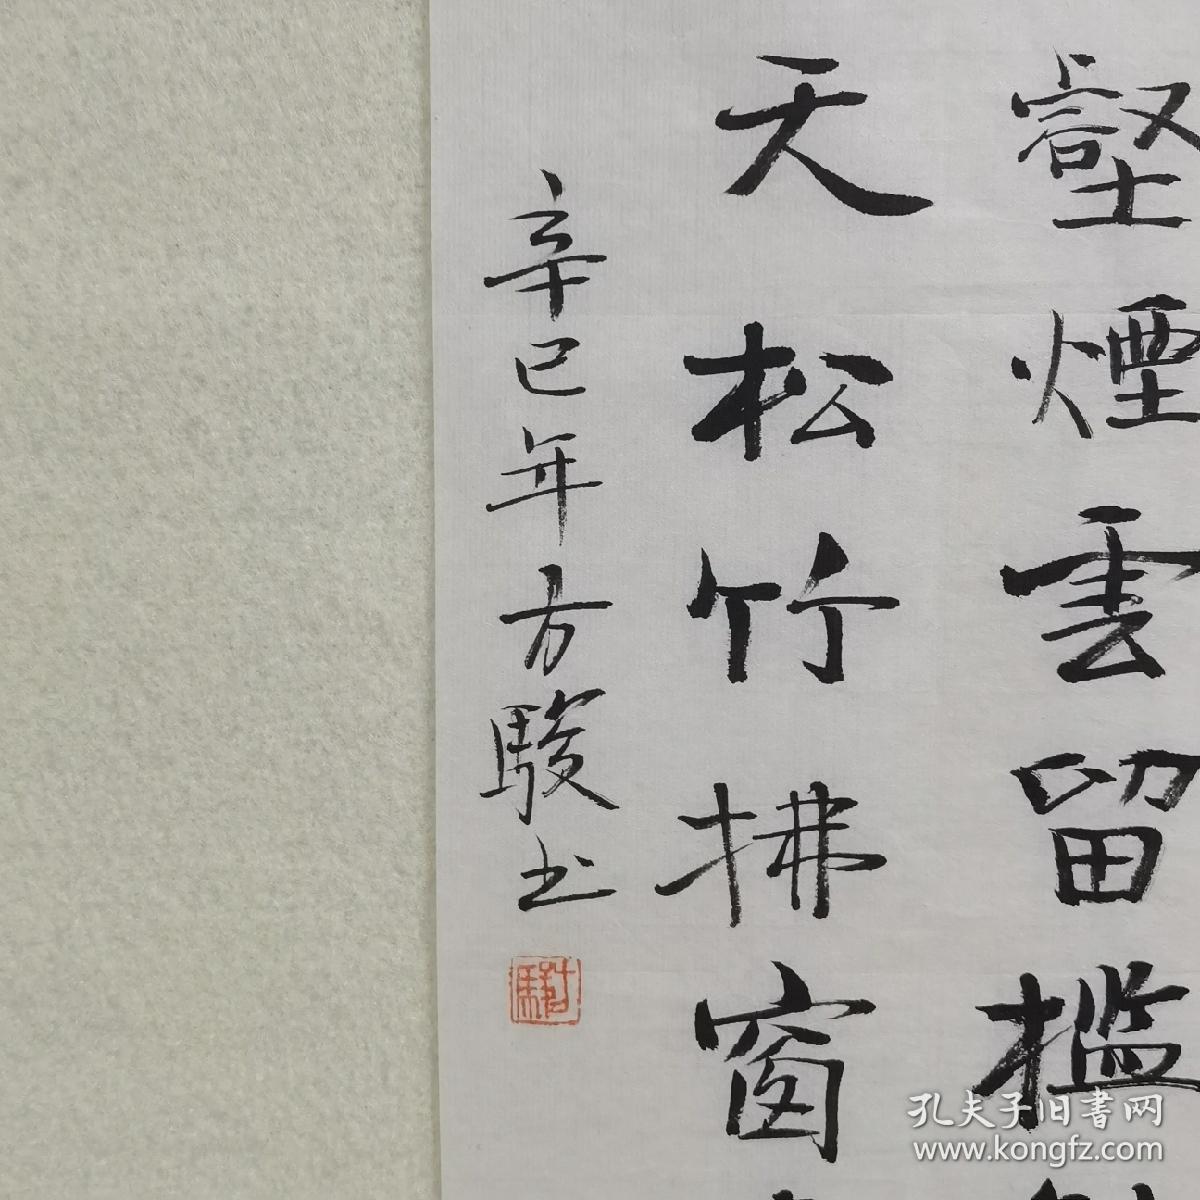 壑煙雲留檻
天松竹拂窗
辛巳年方駿书
孔夫子旧書网
www.kongfz.com